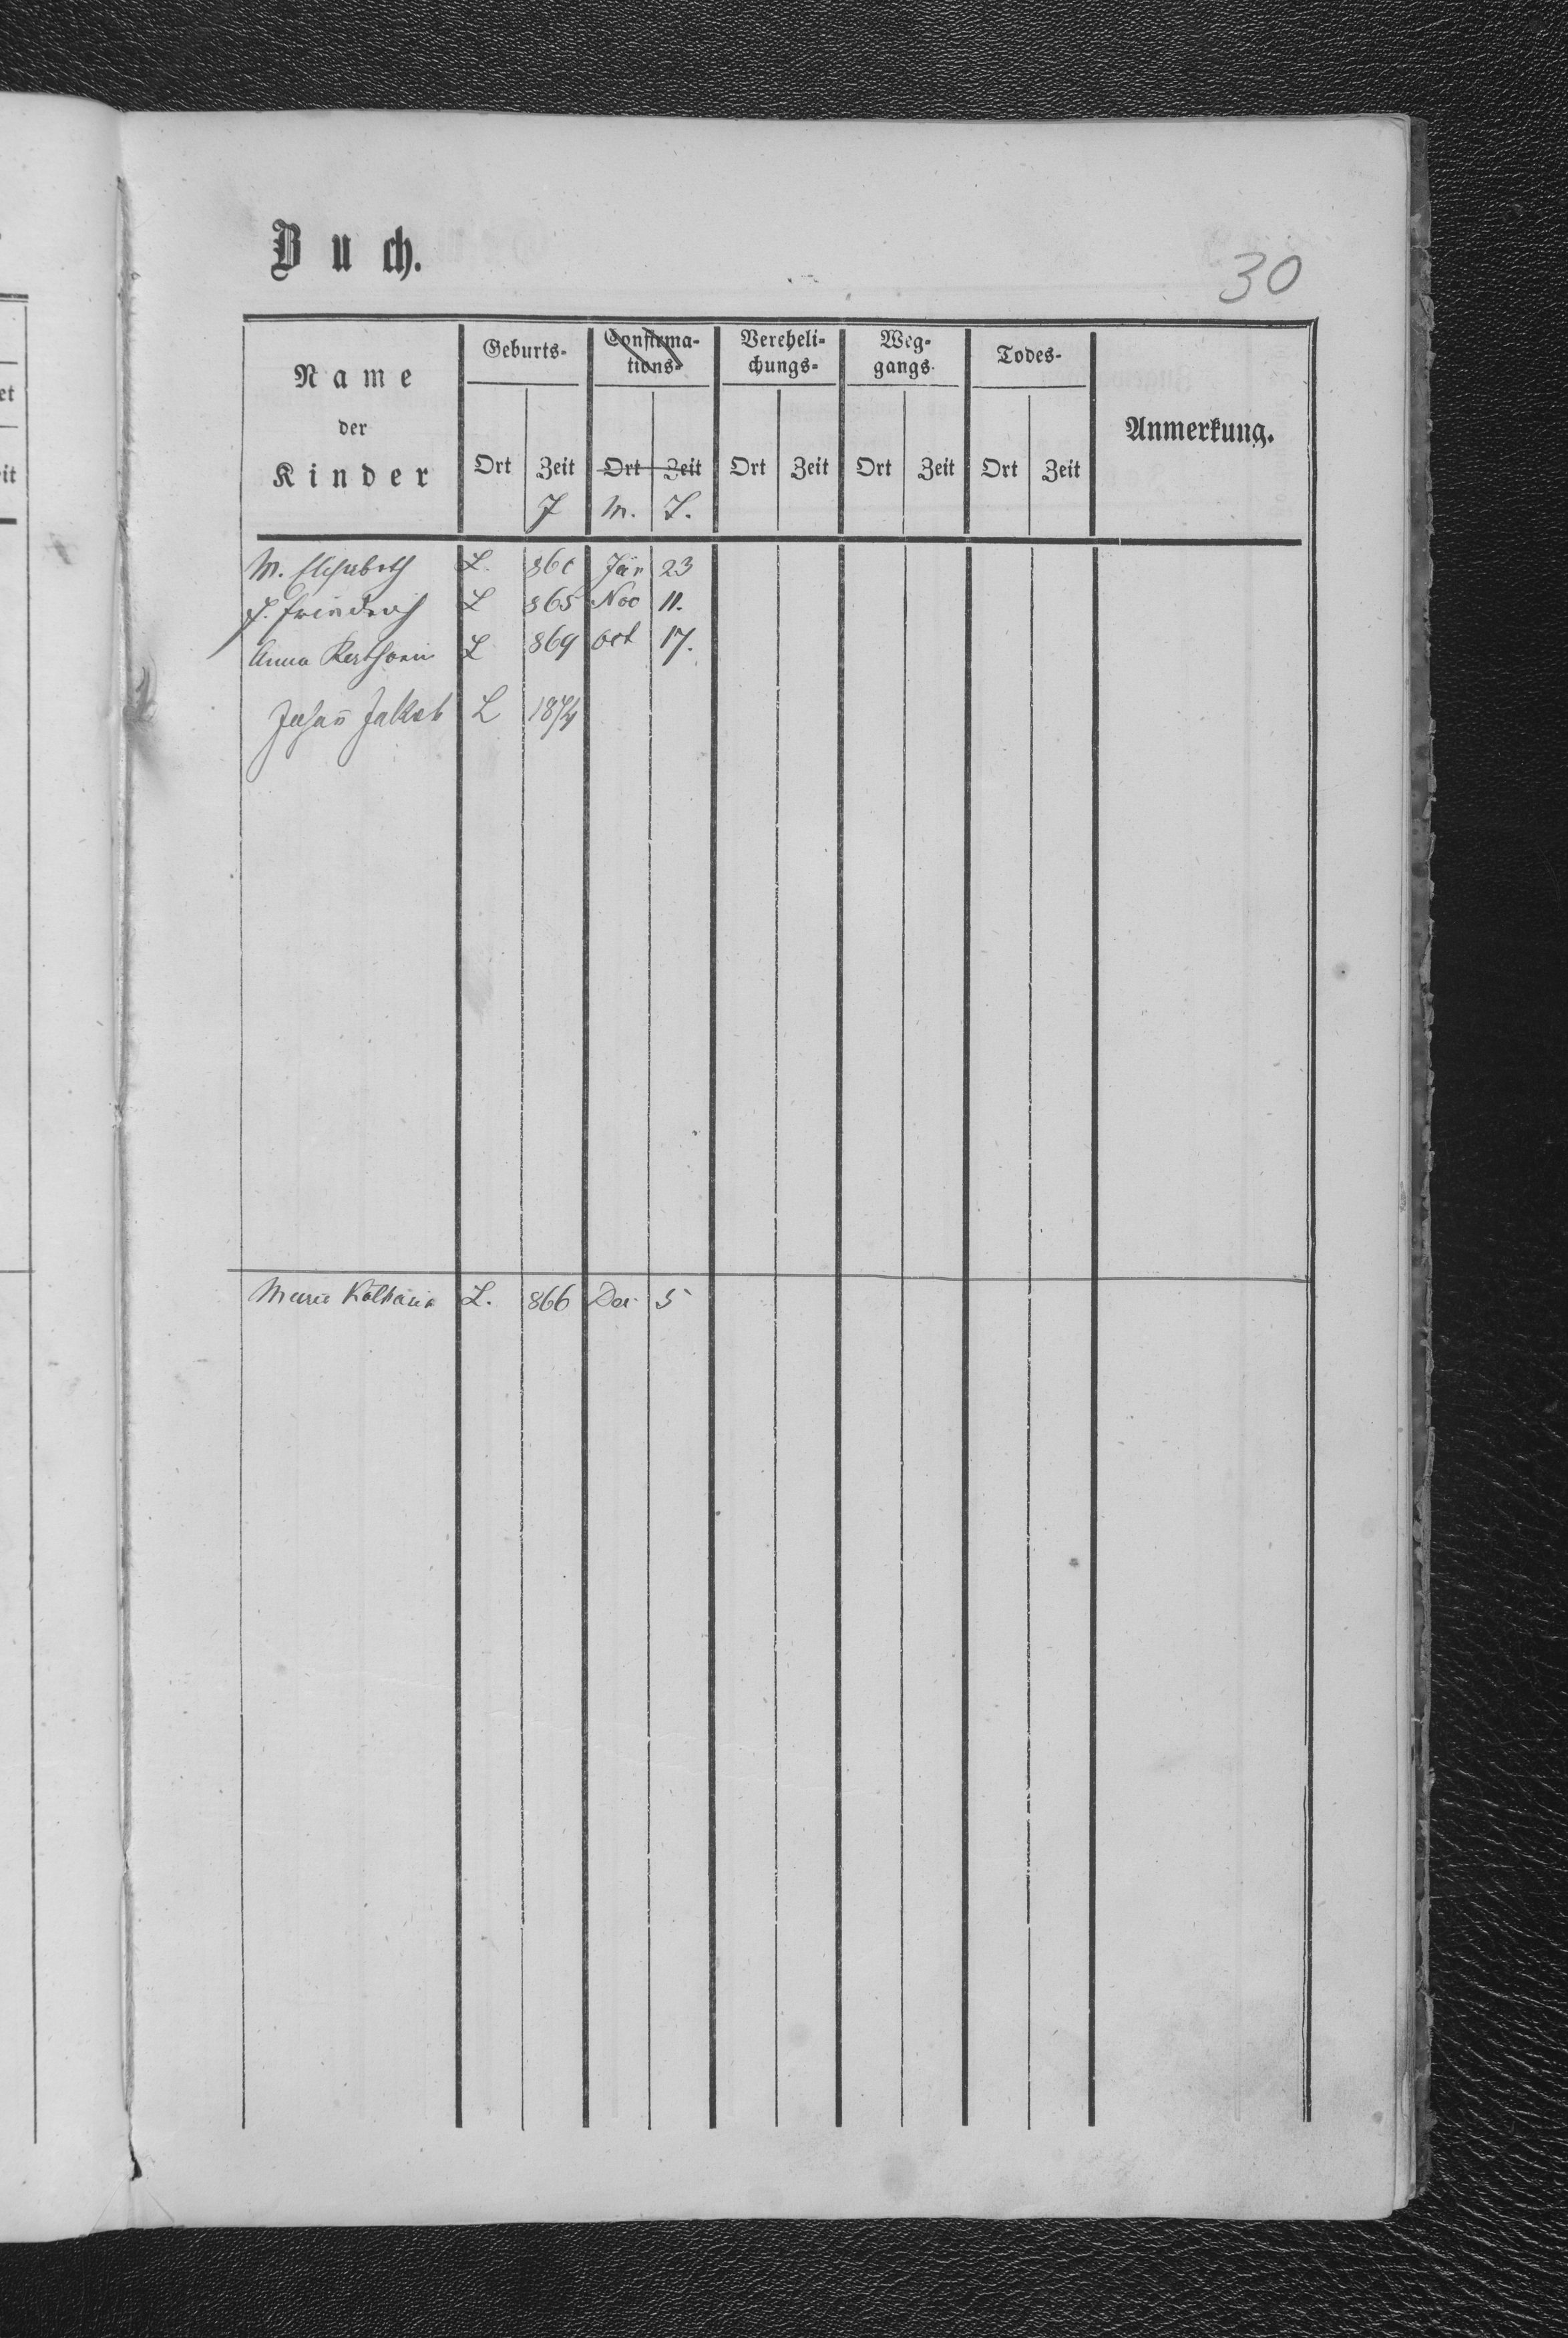 Buch.
30
Name der Kinder
Geburts-
Confirmations-
Verehelichungs-
Weggangs
Todes-
Anmerkung.
Ort Zeit Ort Zeit Ort Zeit Ort Zeit Ort Zeit
J M. T.
M. Elisabeth L. 860 Jän 23
J. Friedrich L 865 Nov 11.
Anna L 869 Oct 17.
Johan̄ Jakob L 1874
Maria L. 866 5